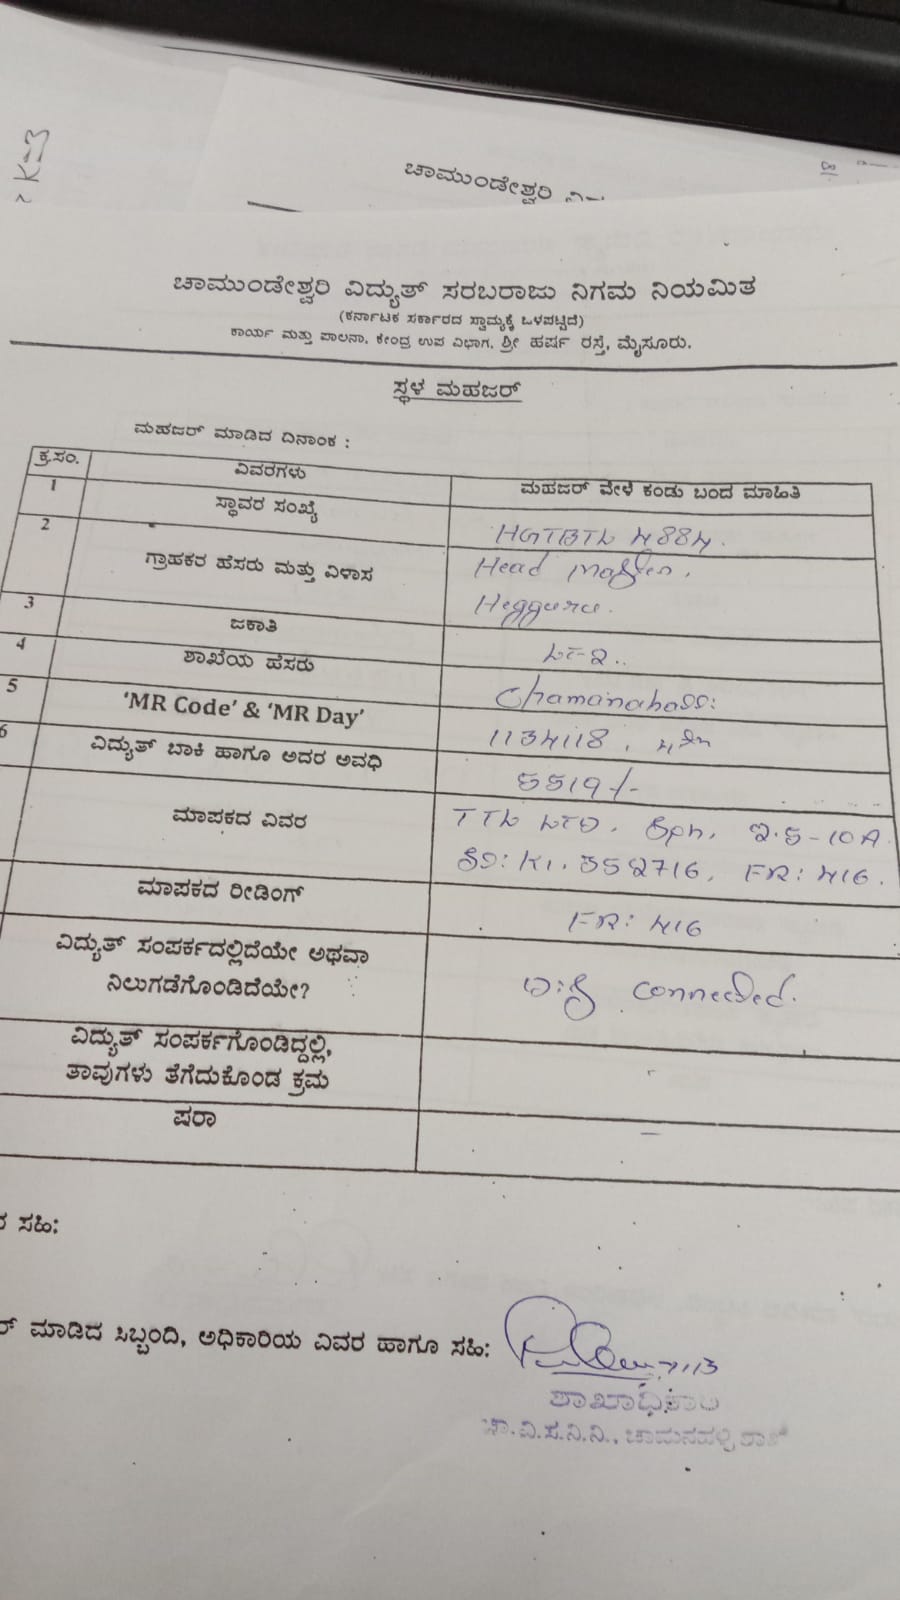 ಚಾಮುಂಡೇಶ್ವರಿ
ಚಾಮುಂಡೇಶ್ವರಿ ವಿದ್ಯುತ್ ಸರಬರಾಜು ನಿಗಮ ನಿಯಮಿತ
(ಕರ್ನಾಟಕ ಸರ್ಕಾರದ ಸ್ವಾಮ್ಯಕ್ಕೆ ಒಳಪಟ್ಟಿದೆ)
ಕಾರ್ಯ ಮತ್ತು ಪಾಲನಾ, ಕೇಂದ್ರ ಉಪ ವಿಭಾಗ, ಶ್ರೀ ಹರ್ಷ ರಸ್ತೆ, ಮೈಸೂರು.
ಸ್ಥಳ ಮಹಜರ್
ಮಹಜರ್ ಮಾಡಿದ ದಿನಾಂಕ :
ಕ್ರ.ಸಂ. ವಿವರಗಳು ಮಹಜರ್ ವೇಳೆ ಕಂಡು ಬಂದ ಮಾಹಿತಿ
1 ಸ್ಥಾವರ ಸಂಖ್ಯೆ HGTBTL 4884.
2 ಗ್ರಾಹಕರ ಹೆಸರು ಮತ್ತು ವಿಳಾಸ Head Master,
Hegguru.
3 ಜಕಾತಿ LT-2..
4 ಶಾಖೆಯ ಹೆಸರು
5 'MR Code' & 'MR Day' 1134118,
6 ವಿದ್ಯುತ್ ಬಾಕಿ ಹಾಗೂ ಅದರ ಅವಧಿ 5519/-
ಮಾಪಕದ ವಿವರ TTL LTD, 2.5-10A
352716, FR: 416.
ಮಾಪಕದ ರೀಡಿಂಗ್ FR: 416
ವಿದ್ಯುತ್ ಸಂಪರ್ಕದಲ್ಲಿದೆಯೇ ಅಥವಾ
ನಿಲುಗಡೆಗೊಂಡಿದೆಯೇ? connected.
ವಿದ್ಯುತ್ ಸಂಪರ್ಕಗೊಂಡಿದ್ದಲ್ಲಿ,
ತಾವುಗಳು ತೆಗೆದುಕೊಂಡ ಕ್ರಮ
ಷರಾ –
ಸಹಿ:
ಮಾಡಿದ ಸಿಬ್ಬಂದಿ, ಅಧಿಕಾರಿಯ ವಿವರ ಹಾಗೂ ಸಹಿ:
ಶಾಖಾಧಿಕಾರಿ
ಚಾ.ವಿ.ಸ.ನಿ.ನಿ.,